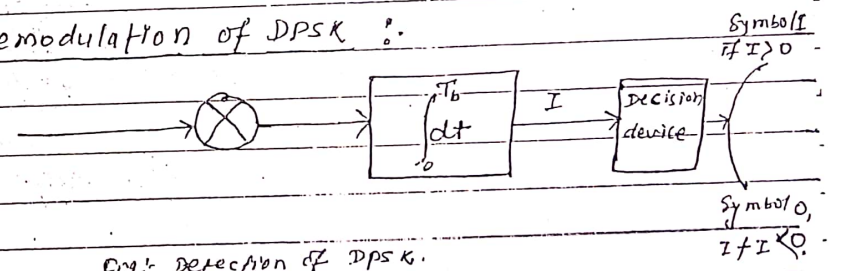 emodulation of DPSK :.
Symbol 1
if I>0
Tb
∫dt
0
I
Decision
device
Symbol 0,
If I<0.
Fig:- Detection of DPSK.